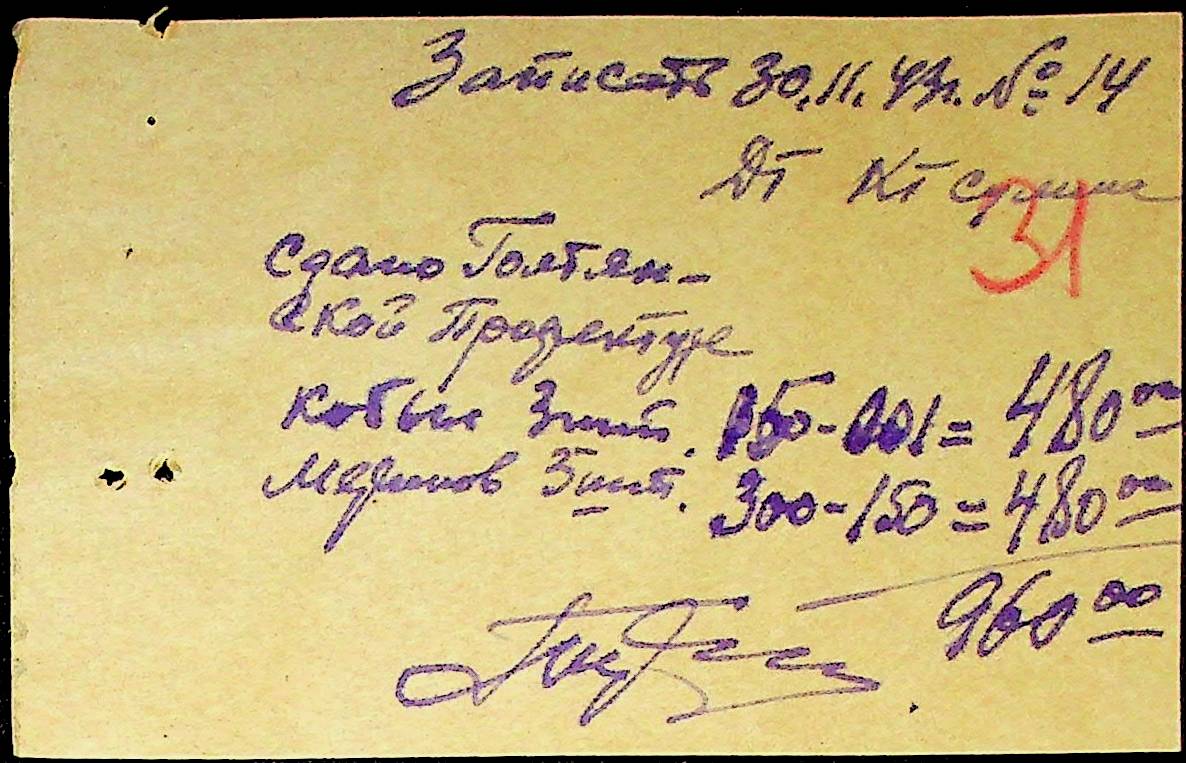 Записать 30.11.43г. № 14
Дт Кт сумма
31
Сдано Голтян-
ской Профектуре
кобыл 3 шт. 150-001 = 480 00
Меринов 3 шт. 300-150 = 480 00
960 00